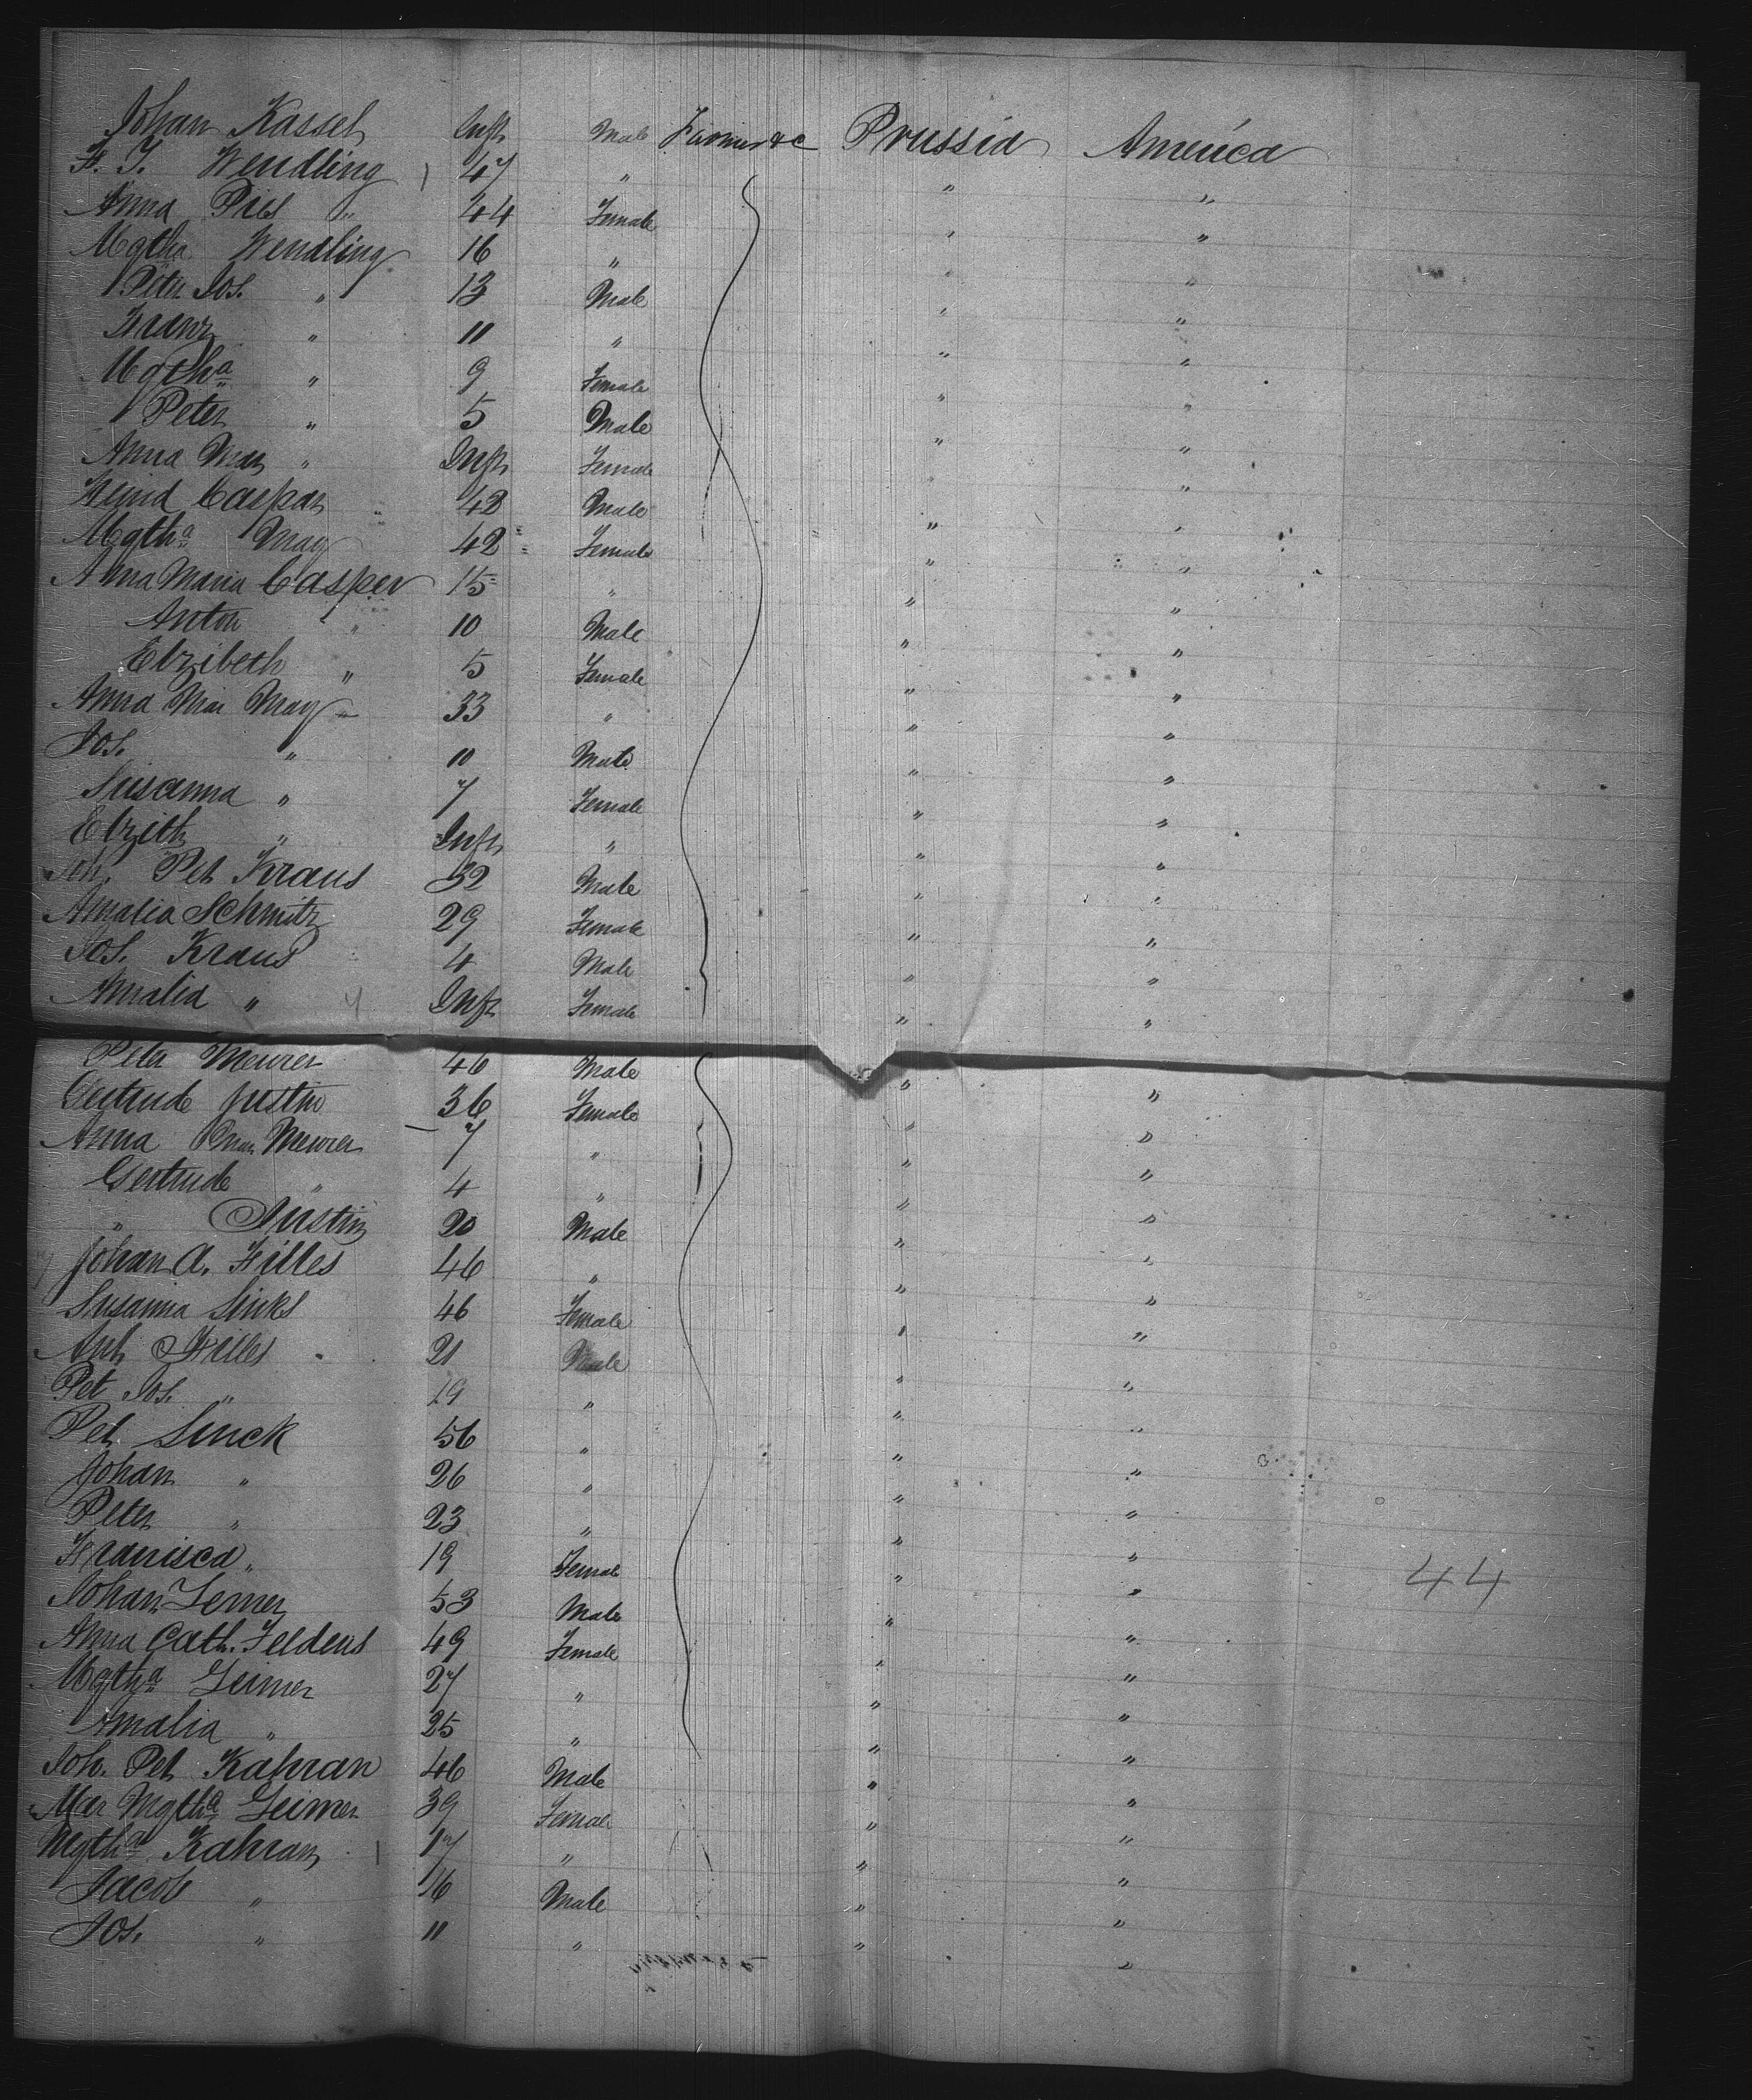 Johan Kassel Inft Male Farmer &c Prussia America
F. J. Wendling 47 " " "
Anna Pies " 44 Female " "
Mgtha Wendling 16 " " "
Peter Jos. " 13 Male " "
Franz " 11 " " "
Mgtha " 9 Female " "
Peter " 5 Male " "
Anna Mar " Inft Female " "
Caspar 42 Male " "
Mgtha May 42 Female " "
Anna Maria Casper 15 " " "
Anton " 10 Male " "
Elzibeth " 5 Female " "
Anna Mar May 33 " " "
Jos. " 10 Male " "
Susanna " 7 Female " "
Elzith " Inft " " "
Joh. Pet Kraus 32 Male " "
Amalia Schmitz 29 Female " "
Jos. Kraus 4 Male " "
Amalia " Inft Female " "
Peter Meurer 46 Male " "
Gertrude Justin 36 Female " "
Anna Mar Meurer 7 " " "
Gertrude " 4 " " "
" Justin 20 Male " "
Johan A. Filles 46 " " "
Susanna Sinks 46 Female " "
Ant Filles 21 Male " "
Pet Jos. " 19 " " "
Pet Sinck 56 " " "
Johan " 26 " " "
Peter " 23 " " "
Franisca " 19 Female " "
44
Johan 53 Male " "
Anna Cath. Feldens 49 Female " "
Mgtha Geimer 27 " " "
Amalia " 25 " " "
Joh. Pet Kahran 46 Male " "
Mar Mgtha Geimer 39 Female " "
Mgtha Kahran 17 " " "
Jacob " 16 Male " "
Jos. " 11 " " "